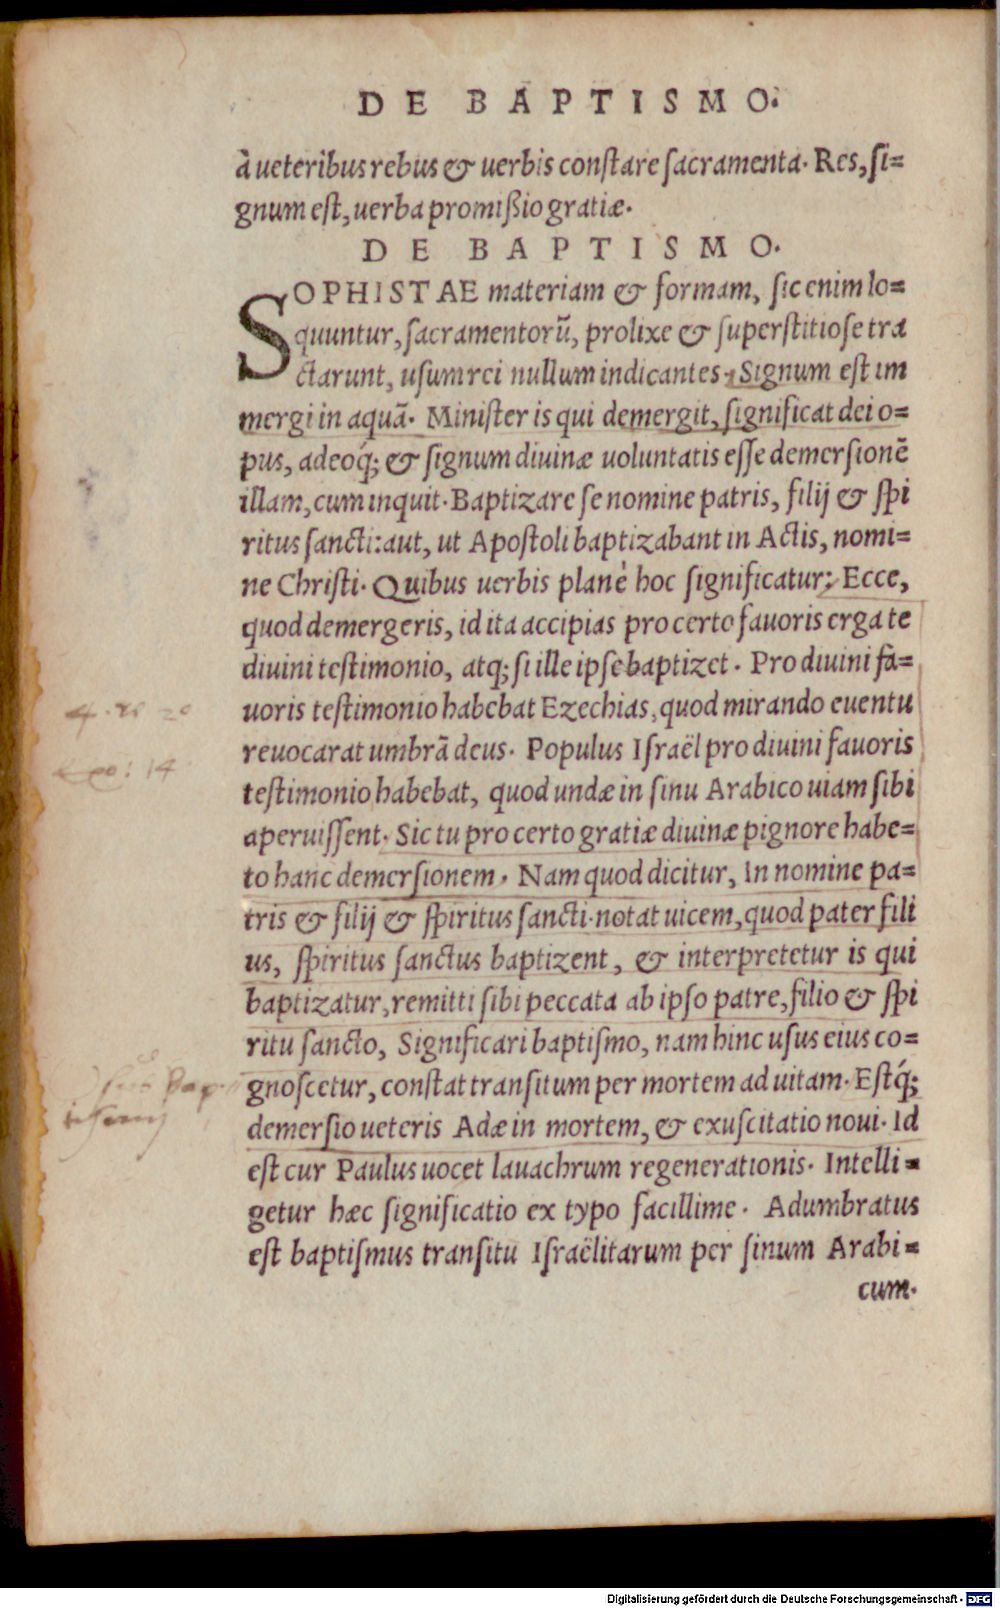 DE BAPTISMO.
à ueteribus rebus & uerbis constare sacramenta. Res, si=
gnum est, uerba promißio gratiæ.
DE BAPTISMO.
SOPHISTAE materiam & formam, sic enim lo=
quuntur, sacramentorũ, prolixe & superstitiose tra
ctarunt, usum rei nullum indicantes. Signum est im
mergi in aquã. Minister is qui demergit, significat dei o=
pus, adeoq́; & signum diuinæ uoluntatis esse demersionẽ
illam, cum inquit. Baptizare se nomine patris, filij & spi
ritus sancti: aut, ut Apostoli baptizabant in Actis, nomi=
ne Christi. Quibus uerbis planè hoc significatur: Ecce,
quod demergeris, id ita accipias pro certo fauoris erga te
diuini testimonio, atq; si ille ipse baptizet. Pro diuini fa=
uoris testimonio habebat Ezechias, quod mirando euentu
reuocarat umbrã deus. Populus Israël pro diuini fauoris
4. 20
testimonio habebat, quod undæ in sinu Arabico uiam sibi
14
aperuissent. Sic tu pro certo gratiæ diuinæ pignore habe=
to hanc demersionem. Nam quod dicitur, In nomine pa=
tris & filij & spiritus sancti. notat uicem, quod pater fili
us, spiritus sanctus baptizent, & interpretetur is qui
baptizatur, remitti sibi peccata ab ipso patre, filio & spi
ritu sancto, Significari baptismo, nam hinc usus eius co=
gnoscetur, constat transitum per mortem ad uitam. Estq́;
demersio ueteris Adæ in mortem, & exuscitatio noui. Id
est cur Paulus uocet lauachrum regenerationis. Intelli=
getur hæc significatio ex typo facillime. Adumbratus
est baptismus transitu Israëlitarum per sinum Arabi=
cum.
Digitalisierung gefördert durch die Deutsche Forschungsgemeinschaft - DFG